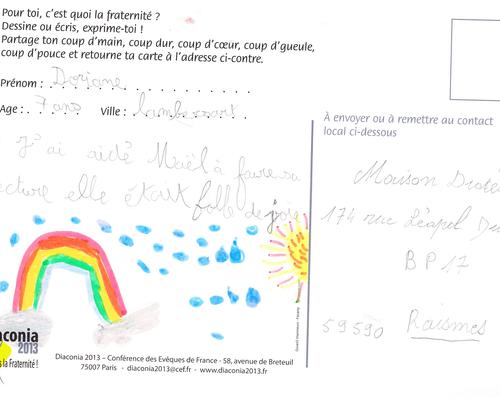 Pour toi, c'est quoi la fraternité ?
Dessine ou écris, exprime-toi !
Partage ton coup d'main, coup dur, coup d'cœur, coup d'gueule,
coup d'pouce et retourne ta carte à l'adresse ci-contre.
Prénom : Doriane
Age : 7 ans Ville : Lambersart
J'ai aidé Maël à faire sa
ecture elle était folle de joie
À envoyer ou à remettre au contact
local ci-dessous
Maison Diocé
174 rue Léopol Du
BP 17
59590 Raismes
aconia
2013
la Fraternité !
Diaconia 2013 – Conférence des Evêques de France - 58, avenue de Breteuil
75007 Paris - diaconia2013@cef.fr - www.diaconia2013.fr